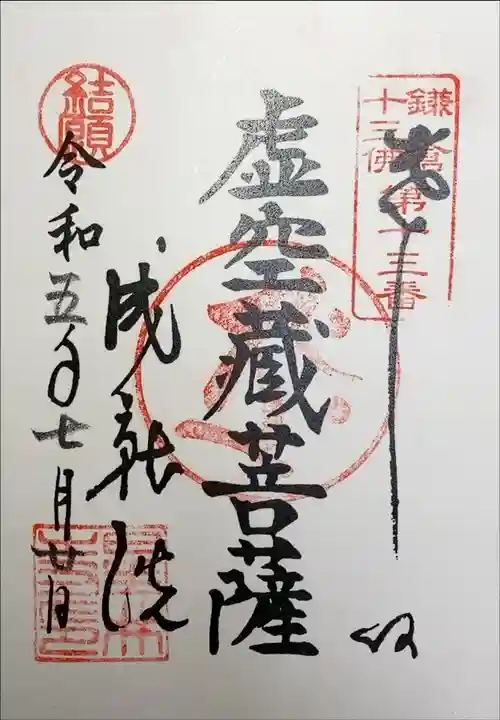 鎌倉
十三佛第十三番
奉拝
虚空蔵菩薩
成就院
結願
令和五年七月廿日